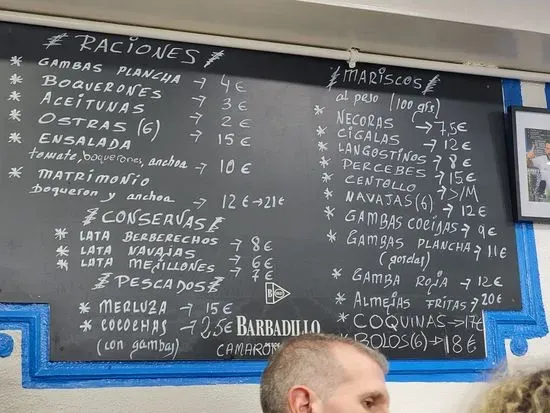 RACIONES
* GAMBAS PLANCHA → 4€
* BOQUERONES → 3€
* ACEITUNAS → 2€
* OSTRAS (6) → 15€
* ENSALADA
tomate, boquerones, anchoa → 10€
* MATRIMONIO
boqueron y anchoa → 12€→21€
CONSERVAS
* LATA BERBERECHOS → 8€
* LATA NAVAJAS → 6€
* LATA MEJILLONES → 7€
PESCADOS
* MERLUZA → 15€
* COCOCHAS → 25€
(con gambas)
BARBADILLO
MARISCOS
al peso (100 grs)
* NECORAS → 7,5€
* CIGALAS → 12€
* LANGOSTINOS → 8€
* PERCEBES → 15€
* CENTOLLO → S/M
* NAVAJAS (6) → 12€
* GAMBAS COCIDAS → 9€
* GAMBAS PLANCHA → 11€
(gordas)
* GAMBA ROJA → 12€
* ALMEJAS FRITAS → 20€
* COQUINAS → 17€
* BOLOS (6) → 18€